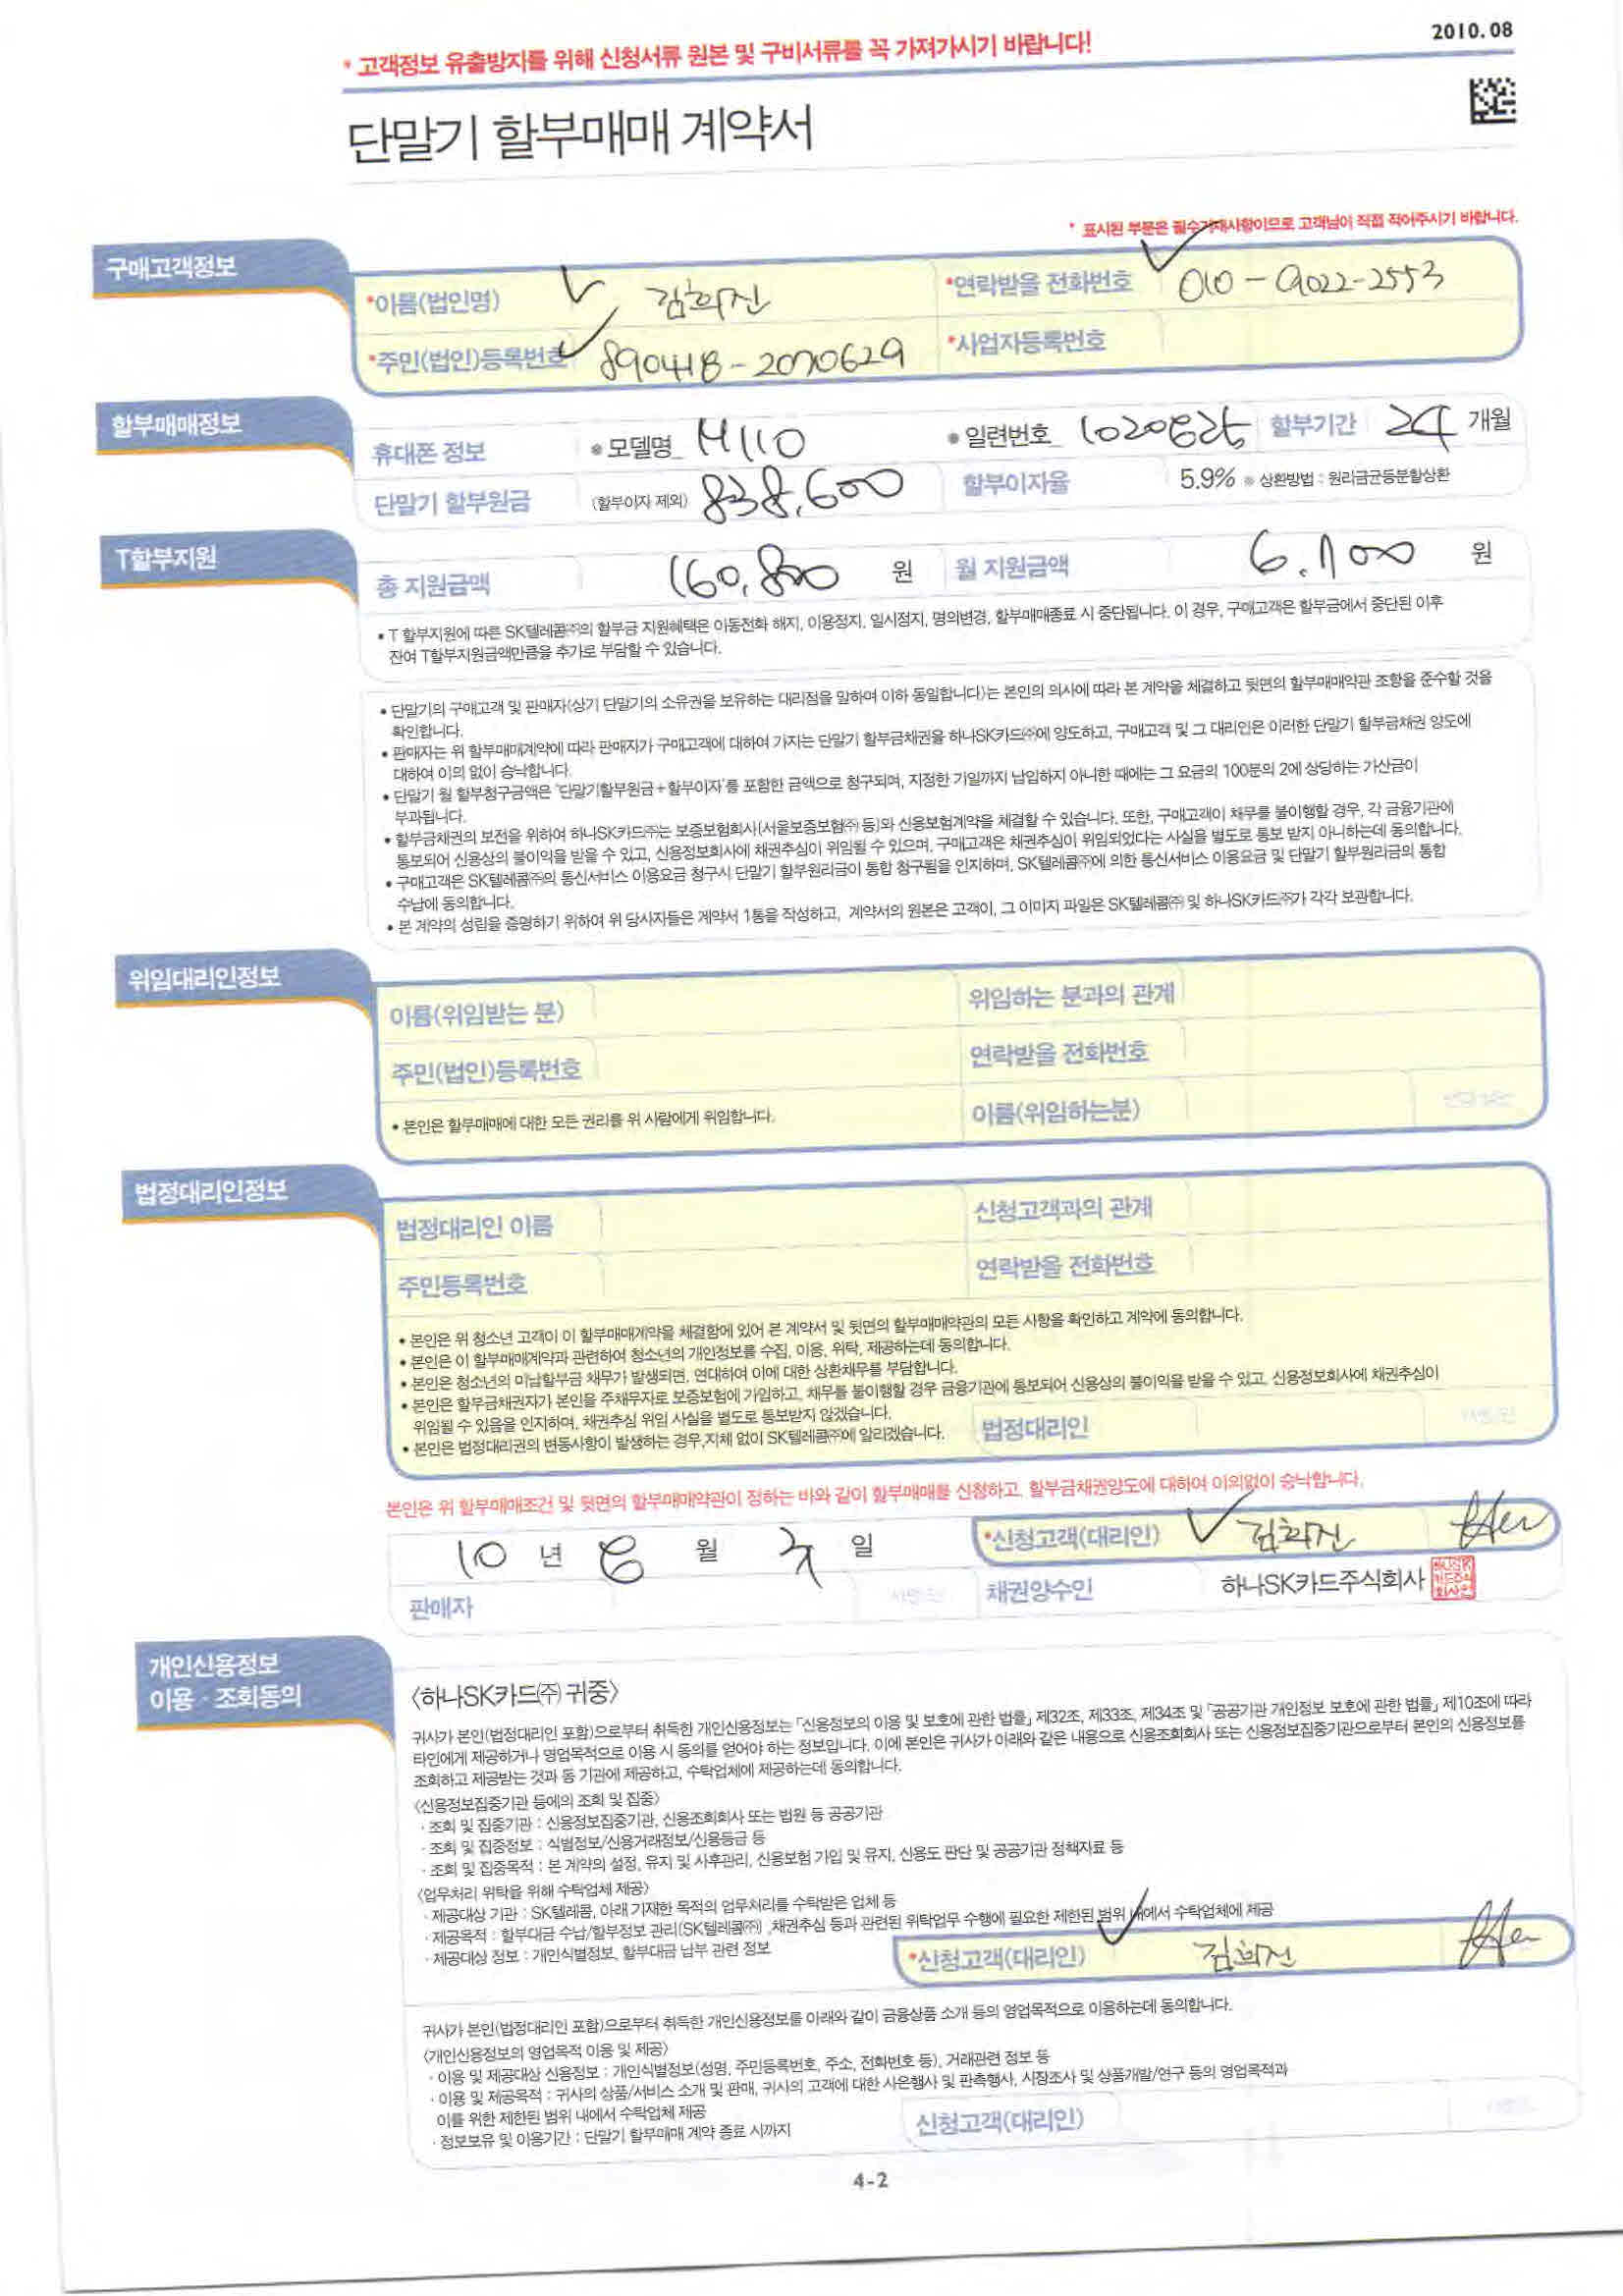 2010.08
* 고객정보 유출방지를 위해 신청서류 원본 및 구비서류를 꼭 가져가시기 바랍니다!
단말기 할부매매 계약서
* 표시된 부분은 필수기재사항이므로 고객님이 직접 적어주시기 바랍니다.
구매고객정보
*이름(법인명) 김희진 *연락받을 전화번호 010-9022-2553
*주민(법인)등록번호 890418-2070629 *사업자등록번호
할부매매정보
휴대폰 정보 ※모델명 M110 ※일련번호 할부기간 24 개월
단말기 할부원금 (할부이자 제외) 838,600 할부이자율 5.9% ※ 상환방법 : 원리금균등분할상환
T할부지원
총 지원금액 160,800 원 월 지원금액 6.700 원
• T 할부지원에 따른 SK텔레콤㈜의 할부금 지원혜택은 이동전화 해지, 이용정지, 일시정지, 명의변경, 할부매매종료 시 중단됩니다. 이 경우, 구매고객은 할부금에서 중단된 이후
잔여 T할부지원금액만큼을 추가로 부담할 수 있습니다.
• 단말기의 구매고객 및 판매자(상기 단말기의 소유권을 보유하는 대리점을 말하며 이하 동일합니다)는 본인의 의사에 따라 본 계약을 체결하고 뒷면의 할부매매약관 조항을 준수할 것을
확인합니다.
• 판매자는 위 할부매매계약에 따라 판매자가 구매고객에 대하여 가지는 단말기 할부금채권을 하나SK카드㈜에 양도하고, 구매고객 및 그 대리인은 이러한 단말기 할부금채권 양도에
대하여 이의 없이 승낙합니다.
• 단말기 월 할부청구금액은 '단말기할부원금+할부이자'를 포함한 금액으로 청구되며, 지정한 기일까지 납입하지 아니한 때에는 그 요금의 100분의 2에 상당하는 가산금이
부과됩니다.
• 할부금채권의 보전을 위하여 하나SK카드㈜는 보증보험회사(서울보증보험㈜ 등)와 신용보험계약을 체결할 수 있습니다. 또한, 구매고객이 채무를 불이행할 경우, 각 금융기관에
통보되어 신용상의 불이익을 받을 수 있고, 신용정보회사에 채권추심이 위임될 수 있으며, 구매고객은 채권추심이 위임되었다는 사실을 별도로 통보 받지 아니하는데 동의합니다.
• 구매고객은 SK텔레콤㈜의 통신서비스 이용요금 청구시 단말기 할부원리금이 통합 청구됨을 인지하며, SK텔레콤㈜에 의한 통신서비스 이용요금 및 단말기 할부원리금의 통합
수납에 동의합니다.
• 본 계약의 성립을 증명하기 위하여 위 당사자들은 계약서 1통을 작성하고, 계약서의 원본은 고객이, 그 이미지 파일은 SK텔레콤㈜ 및 하나SK카드㈜가 각각 보관합니다.
위임대리인정보
이름(위임받는 분) 위임하는 분과의 관계
주민(법인)등록번호 연락받을 전화번호
• 본인은 할부매매에 대한 모든 권리를 위 사람에게 위임합니다. 이름(위임하는분)
법정대리인정보
법정대리인 이름 신청고객과의 관계
주민등록번호 연락받을 전화번호
• 본인은 위 청소년 고객이 이 할부매매계약을 체결함에 있어 본 계약서 및 뒷면의 할부매매약관의 모든 사항을 확인하고 계약에 동의합니다.
• 본인은 이 할부매매계약과 관련하여 청소년의 개인정보를 수집, 이용, 위탁, 제공하는데 동의합니다.
• 본인은 청소년의 미납할부금 채무가 발생되면, 연대하여 이에 대한 상환채무를 부담합니다.
• 본인은 할부금채권자가 본인을 주채무자로 보증보험에 가입하고, 채무를 불이행할 경우 금융기관에 통보되어 신용상의 불이익을 받을 수 있고, 신용정보회사에 채권추심이
위임될 수 있음을 인지하며, 채권추심 위임 사실을 별도로 통보받지 않겠습니다.
• 본인은 법정대리권의 변동사항이 발생하는 경우, 지체 없이 SK텔레콤㈜에 알리겠습니다. 법정대리인 서명/인
본인은 위 할부매매조건 및 뒷면의 할부매매약관이 정하는 바와 같이 할부매매를 신청하고, 할부금채권양도에 대하여 이의없이 승낙합니다.
10 년 8 월 일 *신청고객(대리인) 김희진
판매자 서명/인 채권양수인 하나SK카드주식회사
개인신용정보
이용 · 조회동의
〈하나SK카드㈜ 귀중〉
귀사가 본인(법정대리인 포함)으로부터 취득한 개인신용정보는 「신용정보의 이용 및 보호에 관한 법률」 제32조, 제33조, 제34조 및 「공공기관 개인정보 보호에 관한 법률」 제10조에 따라
타인에게 제공하거나 영업목적으로 이용 시 동의를 얻어야 하는 정보입니다. 이에 본인은 귀사가 아래와 같은 내용으로 신용조회회사 또는 신용정보집중기관으로부터 본인의 신용정보를
조회하고 제공받는 것과 동 기관에 제공하고, 수탁업체에 제공하는데 동의합니다.
〈신용정보집중기관 등에의 조회 및 집중〉
· 조회 및 집중기관 : 신용정보집중기관, 신용조회회사 또는 법원 등 공공기관
· 조회 및 집중정보 : 식별정보/신용거래정보/신용등급 등
· 조회 및 집중목적 : 본 계약의 설정, 유지 및 사후관리, 신용보험 가입 및 유지, 신용도 판단 및 공공기관 정책자료 등
〈업무처리 위탁을 위해 수탁업체 제공〉
· 제공대상 기관 : SK텔레콤, 아래 기재한 목적의 업무처리를 수탁받은 업체 등
· 제공목적 : 할부대금 수납/할부정보 관리(SK텔레콤㈜) ,채권추심 등과 관련된 위탁업무 수행에 필요한 제한된 범위 내에서 수탁업체에 제공
· 제공대상 정보 : 개인식별정보, 할부대금 납부 관련 정보
*신청고객(대리인) 김희진
귀사가 본인(법정대리인 포함)으로부터 취득한 개인신용정보를 아래와 같이 금융상품 소개 등의 영업목적으로 이용하는데 동의합니다.
〈개인신용정보의 영업목적 이용 및 제공〉
· 이용 및 제공대상 신용정보 : 개인식별정보(성명, 주민등록번호, 주소, 전화번호 등), 거래관련 정보 등
· 이용 및 제공목적 : 귀사의 상품/서비스 소개 및 판매, 귀사의 고객에 대한 사은행사 및 판촉행사, 시장조사 및 상품개발/연구 등의 영업목적과
이를 위한 제한된 범위 내에서 수탁업체 제공
· 정보보유 및 이용기간 : 단말기 할부매매 계약 종료 시까지
신청고객(대리인)
4-2